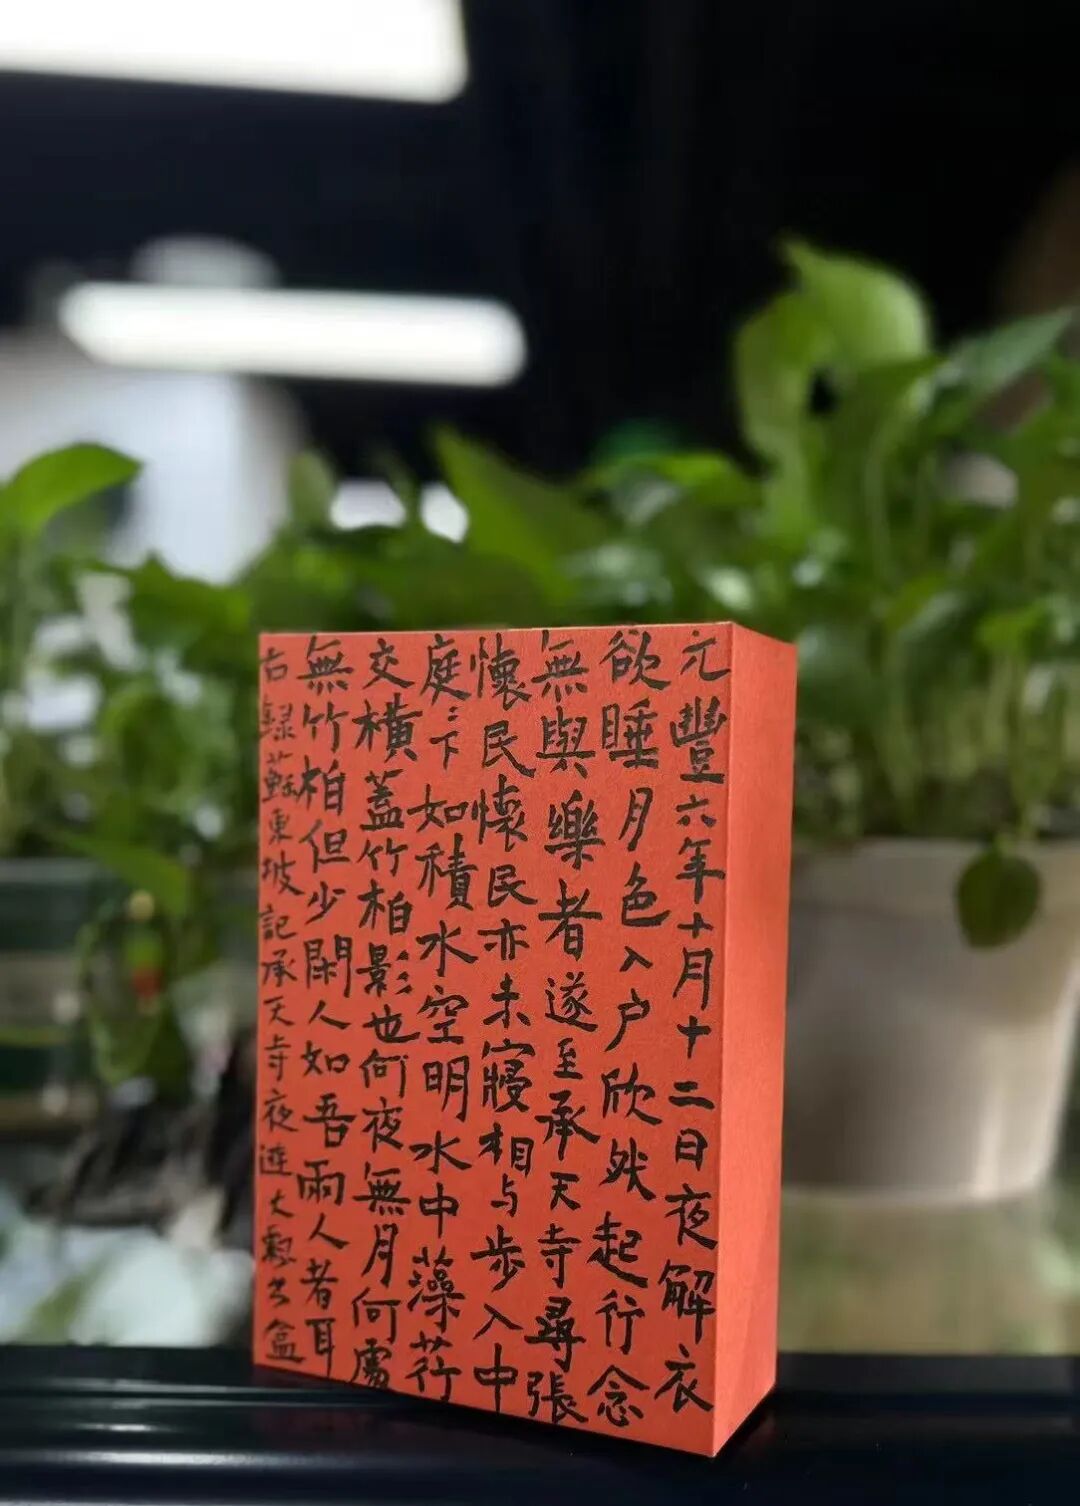 元豐六年十月十二日夜解衣
欲睡月色入户欣然起行念
無與樂者遂至承天寺尋張
懷民懷民亦未寢相与步入中
庭:下如積水空明水中藻荇
交橫蓋竹柏影也何夜無月何處
無竹柏但少閑人如吾兩人者耳
右録蘇東坡記承天寺夜遊大